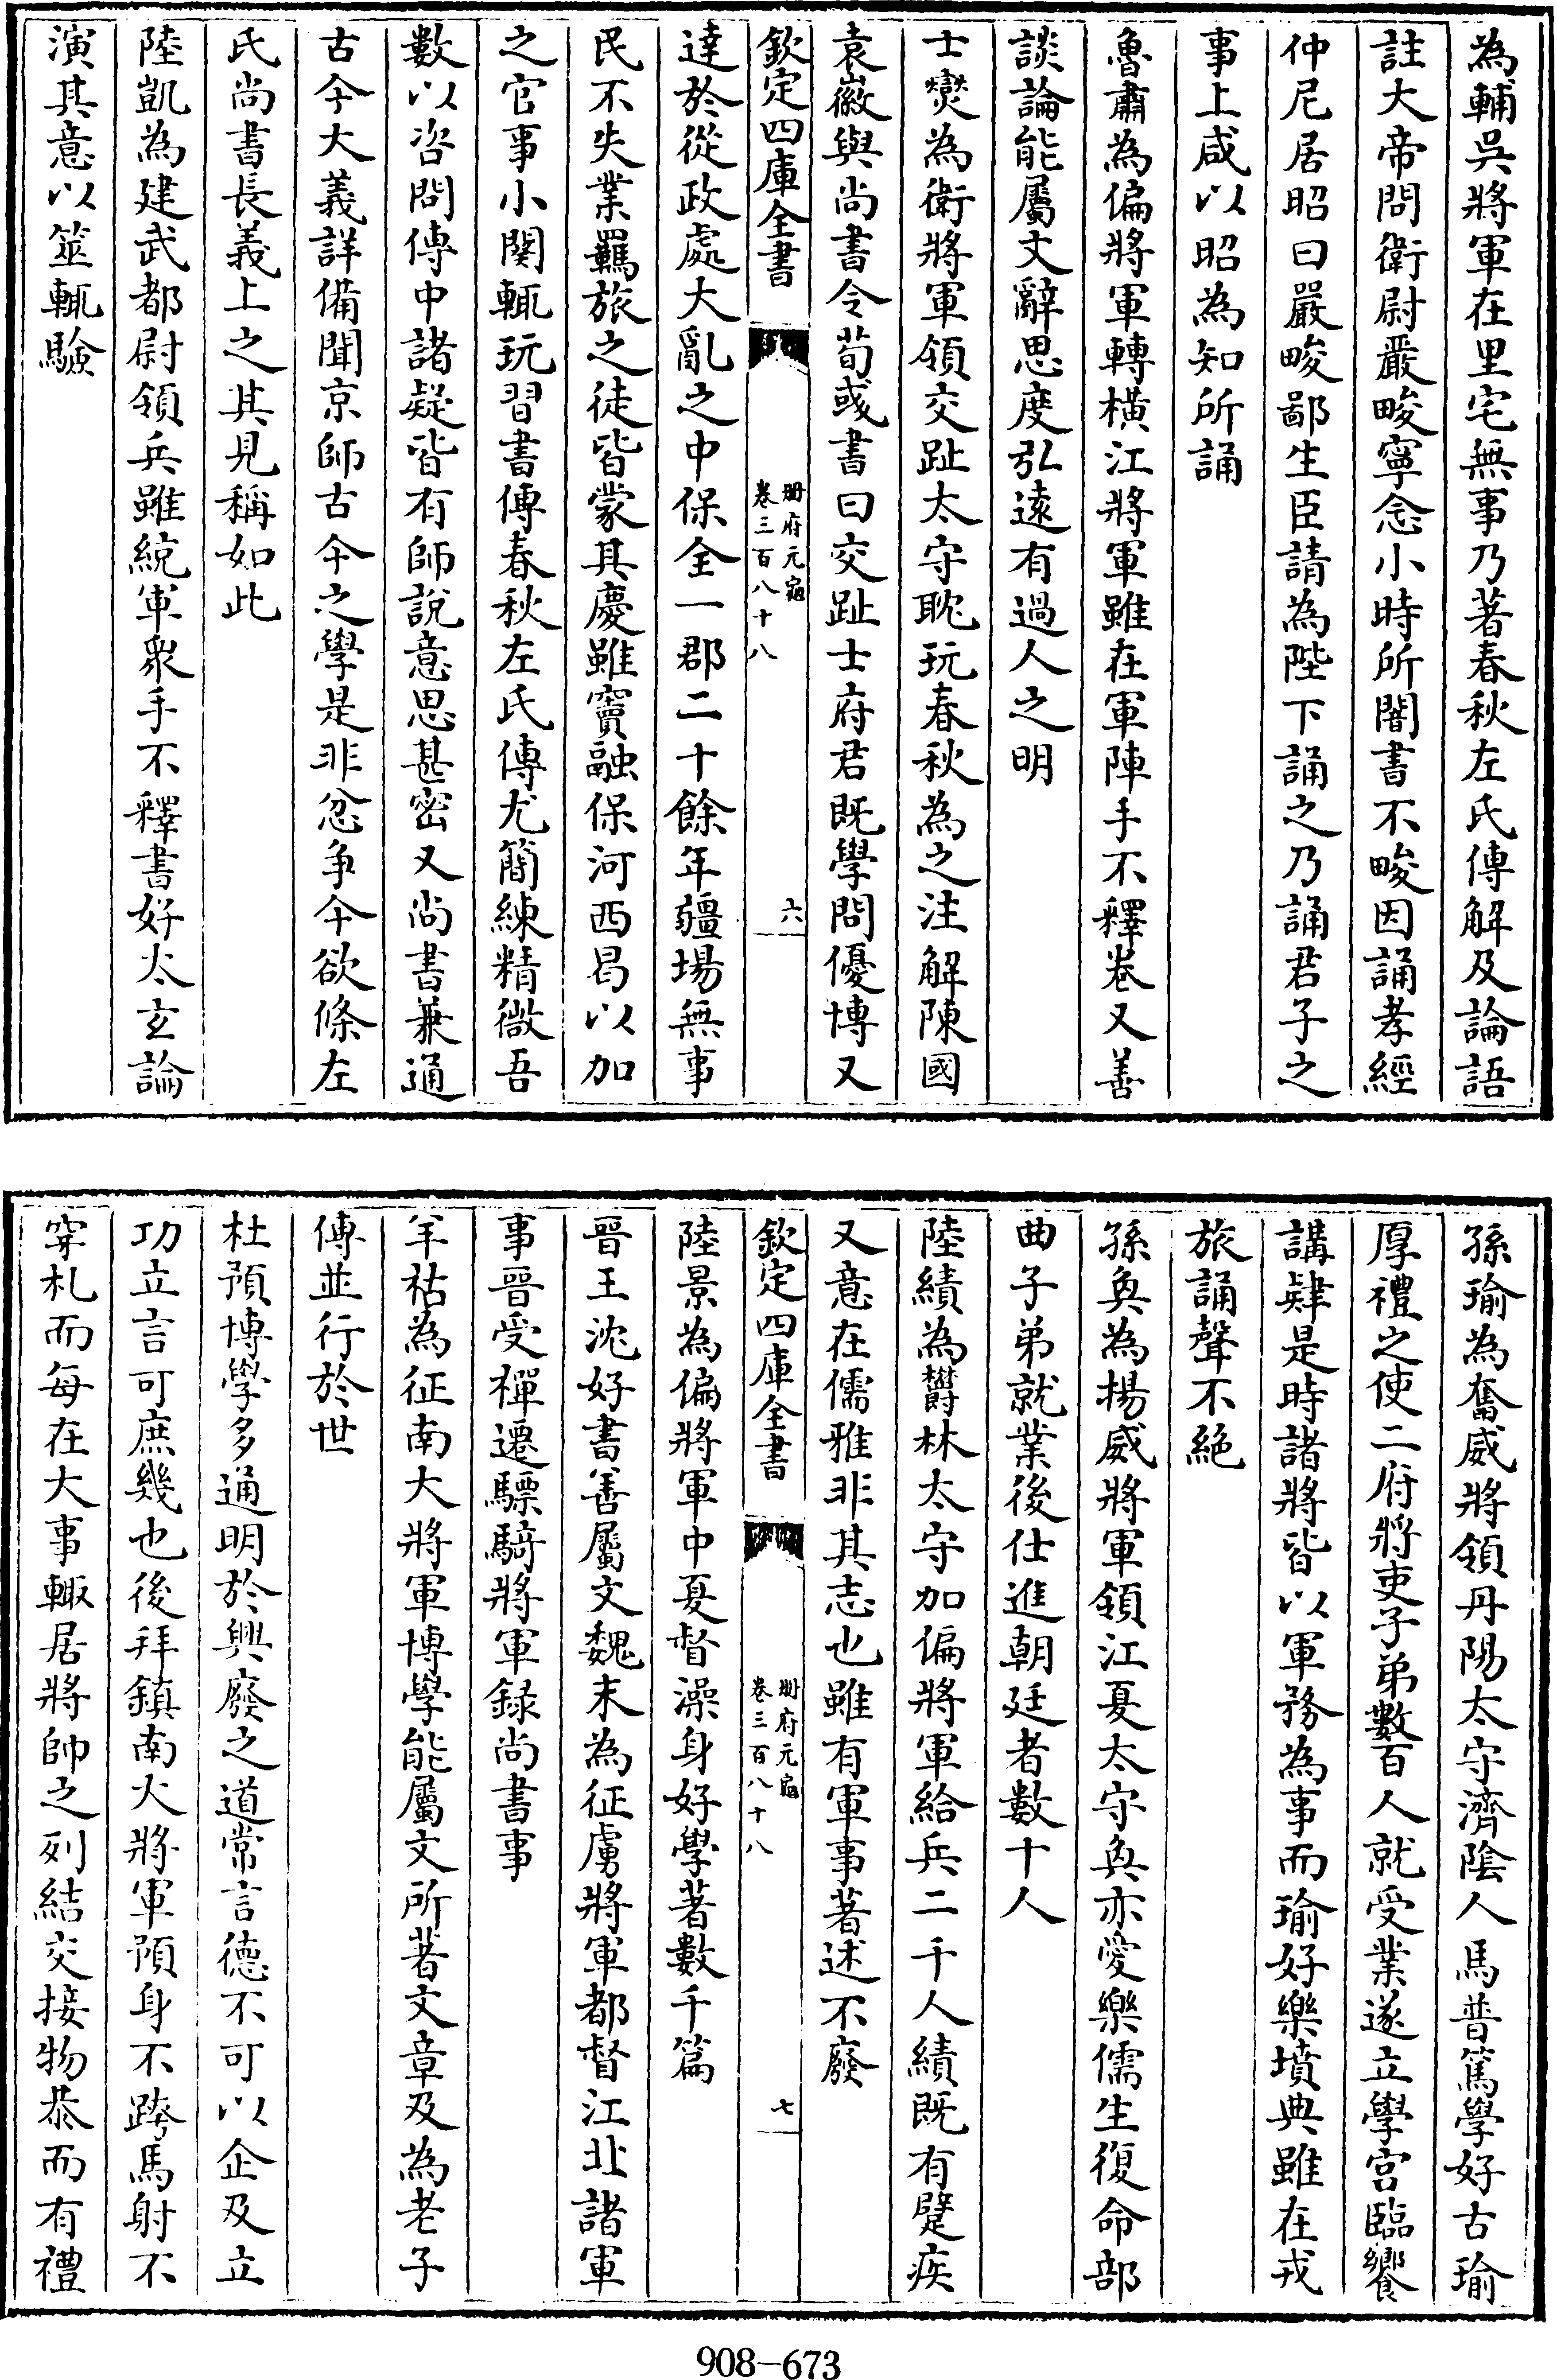 為輔吳將軍在里宅無事乃著春秋左氏傳解及論語
註大帝問衛尉嚴畯寧念小時所闇書不畯因誦孝經
仲尼居昭曰嚴畯鄙生臣請為陛下誦之乃誦君子之
事上咸以昭為知所誦
魯肅為偏將軍轉橫江將軍雖在軍陣手不釋卷又善
談論能屬文辭思度弘遠有過人之明
士燮為衛將軍領交趾太守耽玩春秋為之注解陳國
袁徽與尚書令荀彧書曰交趾士府君既學問優博又
欽定四庫全書
冊府元龜
卷三百八十八
六
達於從政處大亂之中保全一郡二十餘年疆場無事
民不失業羈旅之徒皆蒙其慶雖竇融保河西曷以加
之官事小闋輒玩習書傳春秋左氏傳尤簡練精微吾
數以咨問傳中諸疑皆有師說意思甚密又尚書兼通
古今大義詳備聞京師古今之學是非忿争今欲條左
氏尚書長義上之其見稱如此
陸凱為建武都尉領兵雖統軍衆手不釋書好太玄論
演其意以筮輒驗
孫瑜為奮威將領丹陽太守濟隂人馬普篤學好古瑜
厚禮之使二府將吏子弟數百人就受業遂立學宫臨饗
講肄是時諸將皆以軍務為事而瑜好樂墳典雖在戎
旅誦聲不絶
孫奐為揚威將軍領江夏太守奐亦愛樂儒生復命部
曲子弟就業後仕進朝廷者數十人
陸績為欎林太守加偏將軍給兵二千人績既有躄疾
又意在儒雅非其志也雖有軍事著述不廢
欽定四庫全書
冊府元龜
卷三百八十八
七
陸景為偏將軍中夏督澡身好學著數千篇
晉王沈好書善屬文魏末為征虜將軍都督江北諸軍
事晉受禪遷驃騎將軍録尚書事
羊祜為征南大將軍博學能屬文所著文章及為老子
傳並行於世
杜預博學多通明於興廢之道常言德不可以企及立
功立言可庶幾也後拜鎮南大將軍預身不跨馬射不
穿札而每在大事輙居將帥之列結交接物恭而有禮
908-673